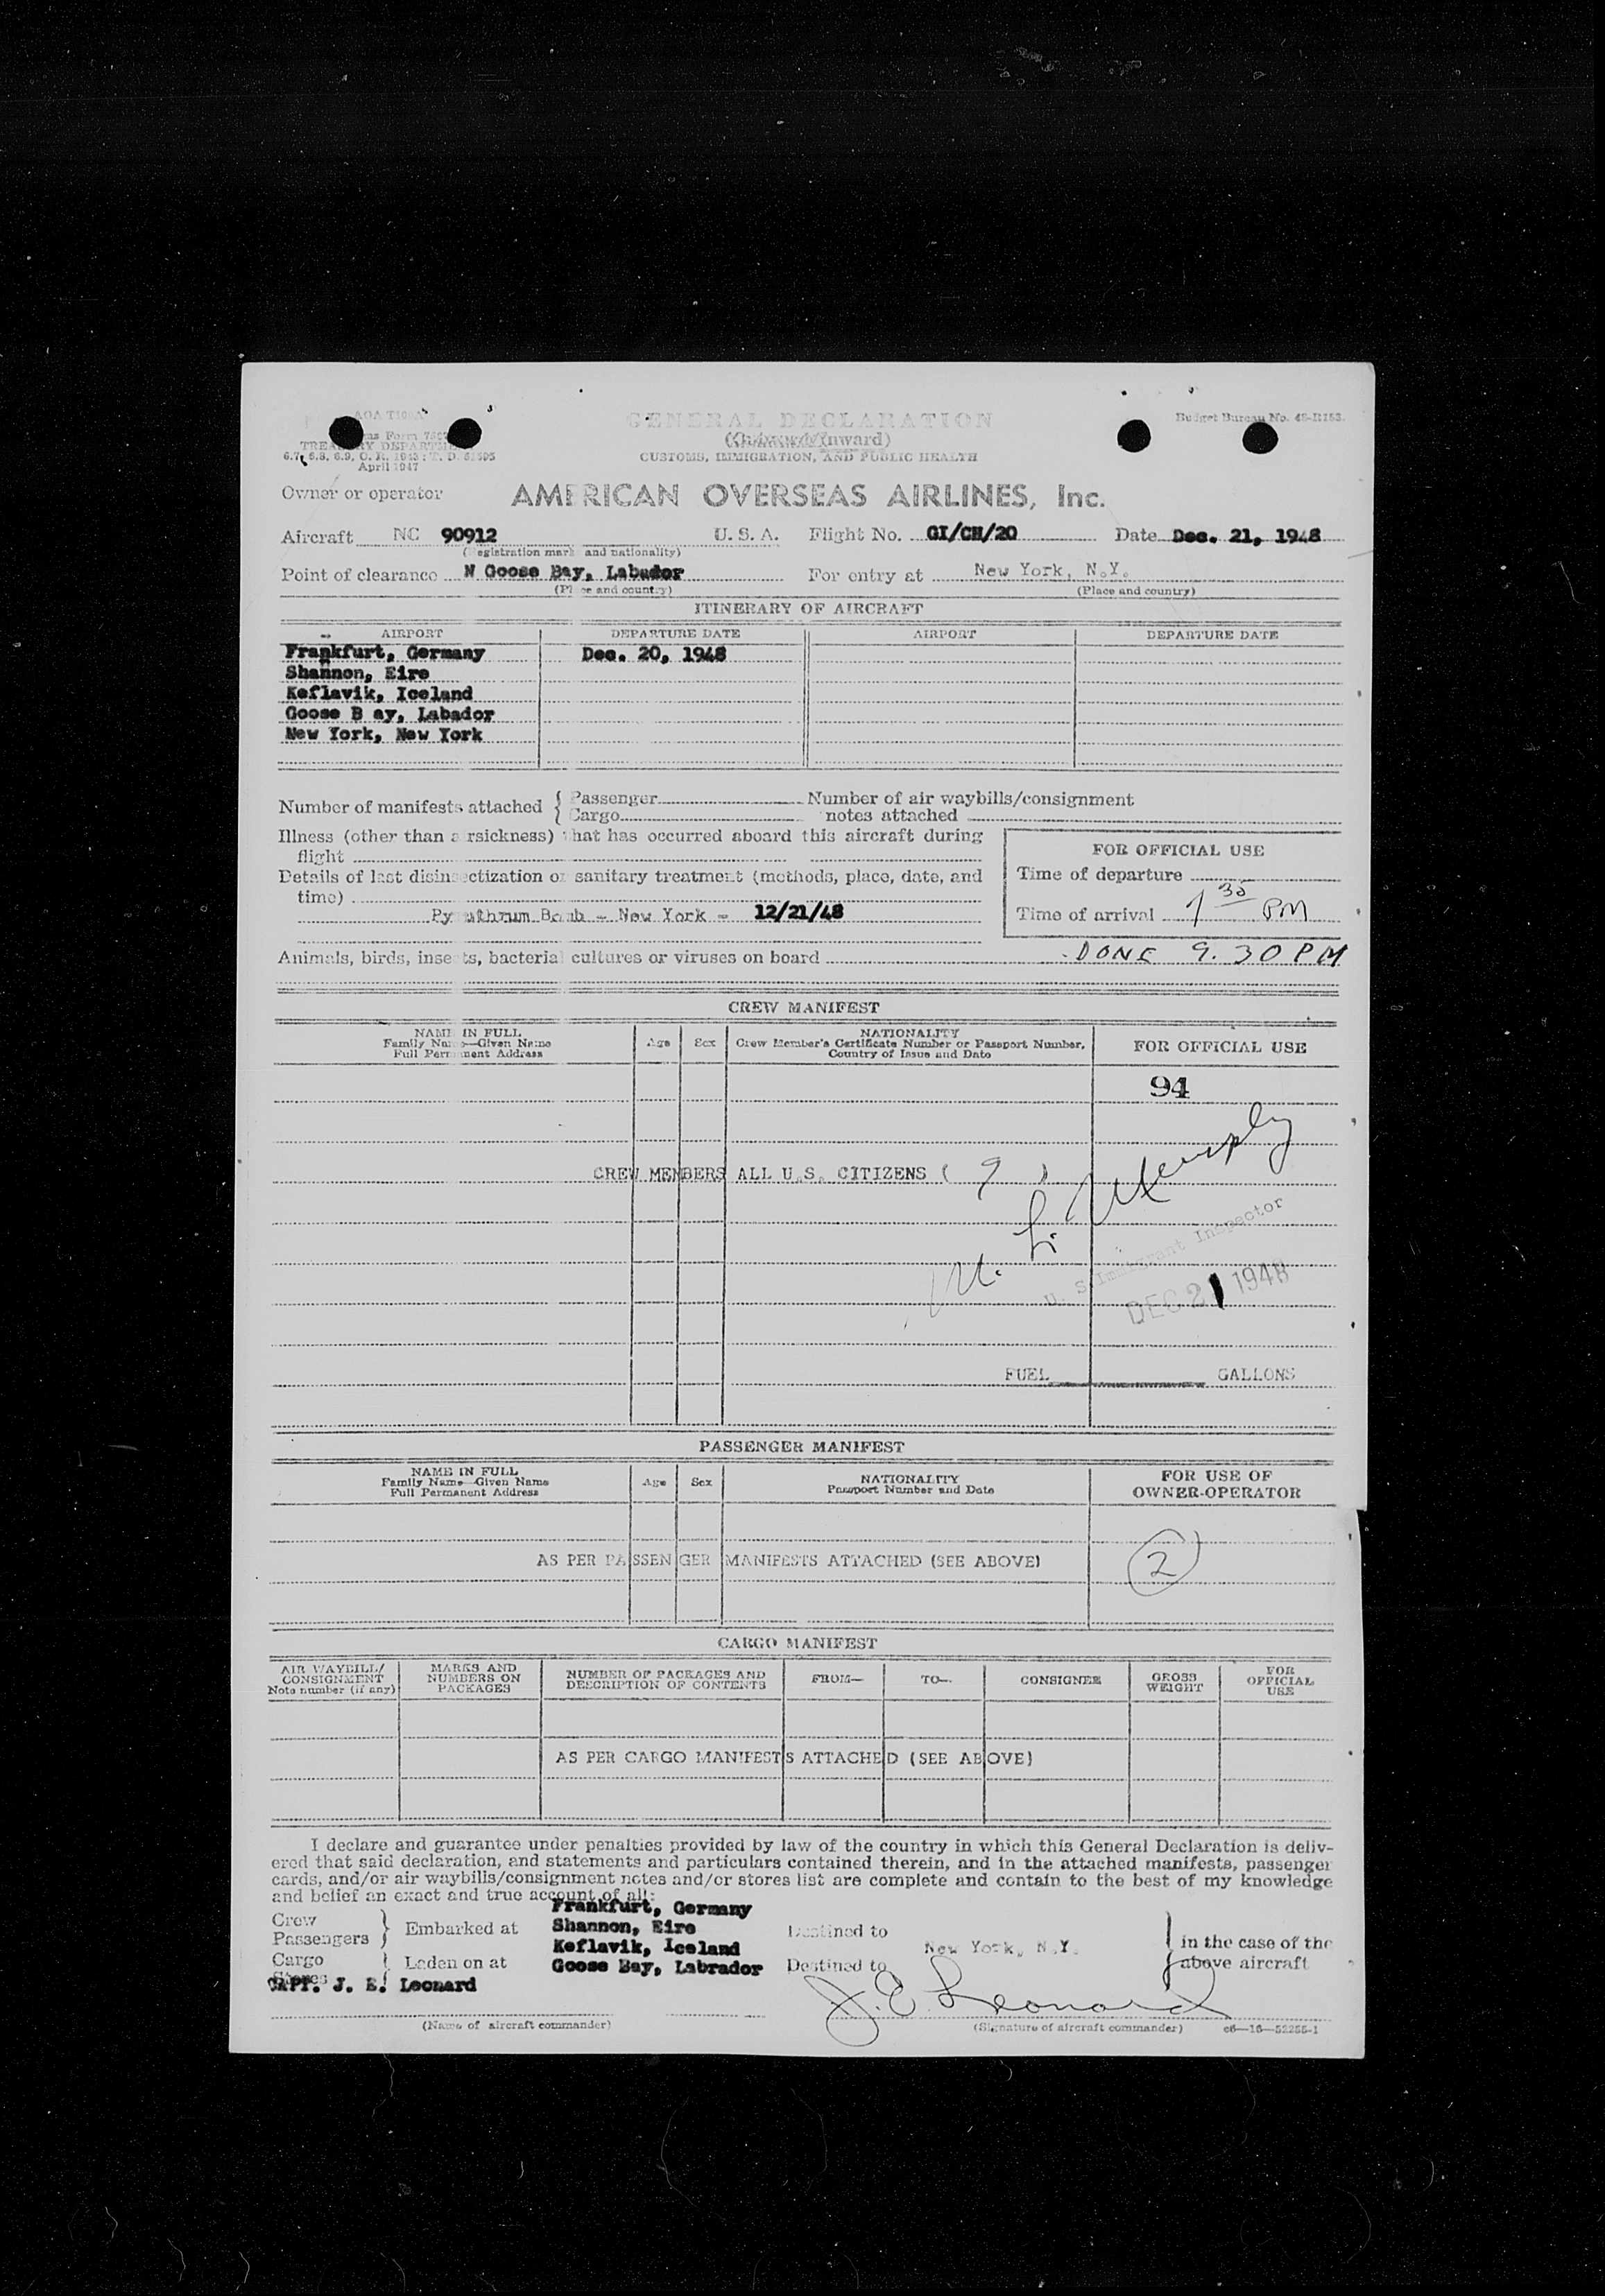 AOA T100A
GENERAL DECLARATION
Budget Bureau No. 48-R153.
(Outward/Inward)
TREASURY DEPARTMENT
CUSTOMS, IMMIGRATION, AND PUBLIC HEALTH
April 1947
Owner or operator AMERICAN OVERSEAS AIRLINES, Inc.
Aircraft NC 90912 U. S. A. Flight No. GI/CH/20 Date Dec. 21, 1948
(Registration mark and nationality)
Point of clearance N Goose Bay, Labador For entry at New York, N.Y.
(Place and country) (Place and country)
ITINERARY OF AIRCRAFT
AIRPORT DEPARTURE DATE AIRPORT DEPARTURE DATE
Frankfurt, Germany Dec. 20, 1948
Shannon, Eire
Keflavik, Iceland
Goose B ay, Labador
New York, New York
Number of manifests attached { Passenger Number of air waybills/consignment
Cargo notes attached
Illness (other than airsickness) that has occurred aboard this aircraft during
flight
FOR OFFICIAL USE
Details of last disinsectization or sanitary treatment (methods, place, date, and
time)
Time of departure
Pyrethrum Bomb - New York - 12/21/48
Time of arrival PM
Animals, birds, insects, bacterial cultures or viruses on board DONE 9.30 PM
CREW MANIFEST
NAME IN FULL
Family Name—Given Name
Full Permanent Address
Age Sex
NATIONALITY
Crew Member's Certificate Number or Passport Number,
Country of Issue and Date
FOR OFFICIAL USE
94
CREW MEMBERS ALL U.S. CITIZENS ( 9 )
U. S. Immigrant Inspector
DEC 21 1948
FUEL GALLONS
PASSENGER MANIFEST
NAME IN FULL
Family Name—Given Name
Full Permanent Address
Age Sex
NATIONALITY
Passport Number and Date
FOR USE OF
OWNER-OPERATOR
AS PER PASSENGER MANIFESTS ATTACHED (SEE ABOVE) 2
CARGO MANIFEST
AIR WAYBILL/
CONSIGNMENT
Note number (if any)
MARKS AND
NUMBERS ON
PACKAGES
NUMBER OF PACKAGES AND
DESCRIPTION OF CONTENTS
FROM— TO— CONSIGNEE
GROSS
WEIGHT
FOR
OFFICIAL
USE
AS PER CARGO MANIFESTS ATTACHED (SEE ABOVE)
I declare and guarantee under penalties provided by law of the country in which this General Declaration is deliv-
ered that said declaration, and statements and particulars contained therein, and in the attached manifests, passenger
cards, and/or air waybills/consignment notes and/or stores list are complete and contain to the best of my knowledge
and belief an exact and true account of all:
Frankfurt, Germany
Crew
Passengers } Embarked at Shannon, Eire Destined to
Keflavik, Iceland New York, N.Y. } in the case of the
Cargo
Stores } Laden on at Goose Bay, Labrador Destined to above aircraft
CAPT. J. E. Leonard J. E. Leonard
(Name of aircraft commander) (Signature of aircraft commander) c6—16—52255-1